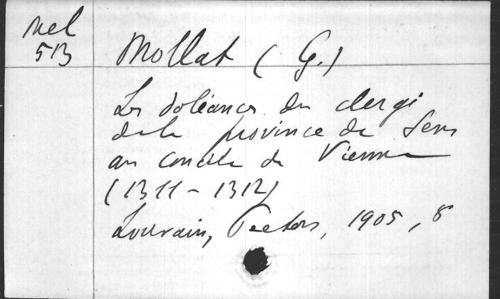 Mel
513
Mollat (G.)
Les doléances du clergé
de la province de Sens
au concile de Vienne
(1311-1312)
Louvain, Peeters, 1905, 8